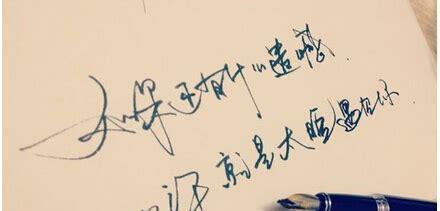 如果还有什么遗憾
就是太晚遇见你